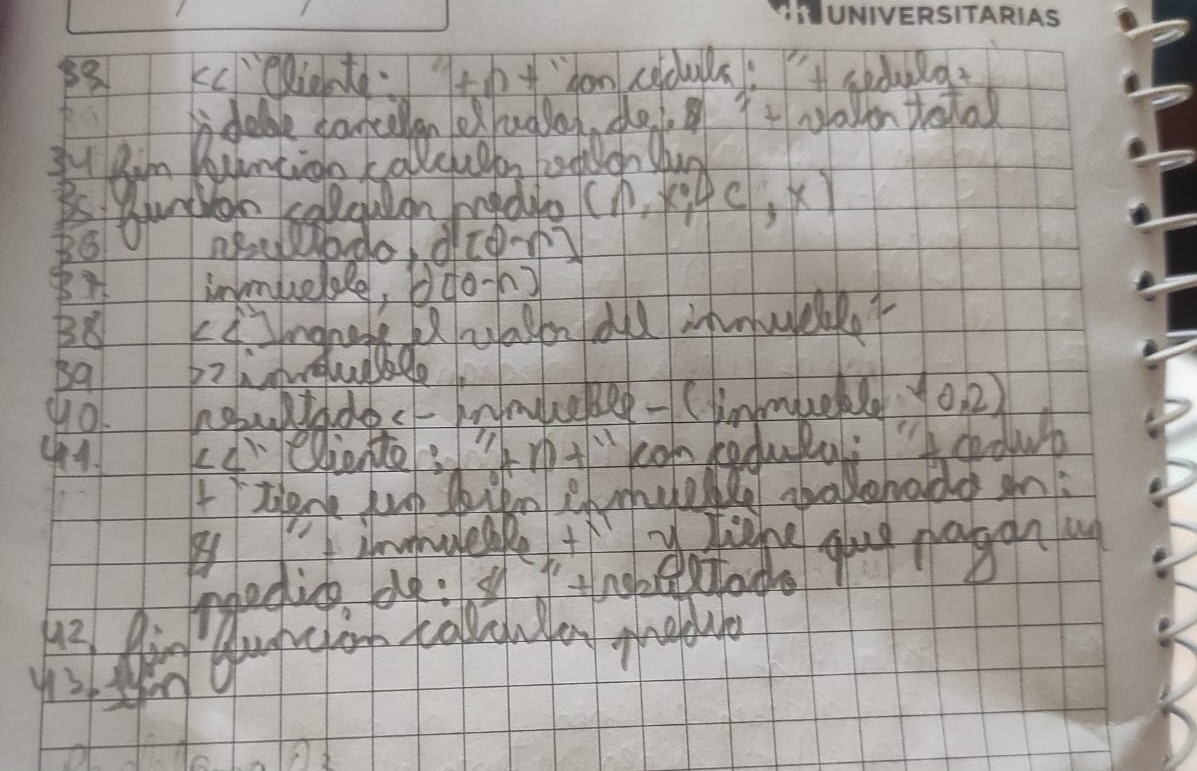 UNIVERSITARIAS
33. << "Cliente: "+n+ "con cédula: "+ cedula+
"debe cancelar el valor de: $ "+ valor total
34 fin funcion calcular valor luz
35. funcion calcular predio (n, c, x)
36 resultado, d [0-n]
37. inmueble, d [0-n]
38 << "Ingrese el valor del inmueble"
39 >> inmueble
40. resultado <- inmueble - (inmueble * 0.2)
41. << "Cliente: "+n+" con cedula: "+ cedula
+ "tiene un bien inmueble valorado en:
$ "+ inmueble + " y tiene que pagar un
predio de: $ "+resultado
42. fin función calcular predio
43. fin